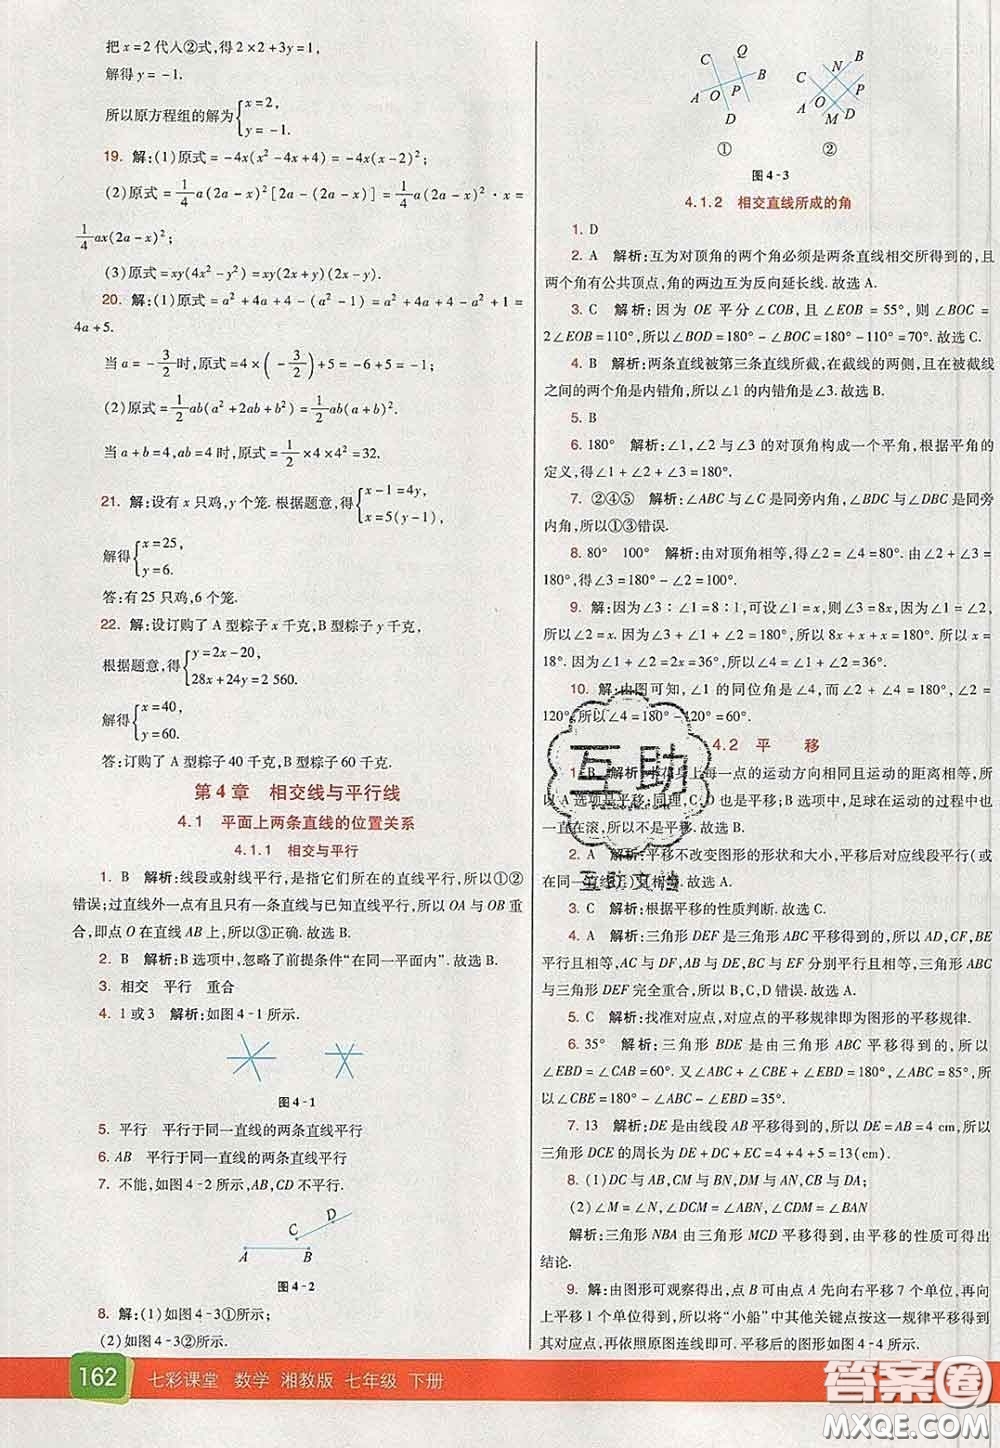 把x=2代入②式,得2×2+3y=1,
解得y=-1.
所以原方程组的解为{x=2, y=-1.
19. 解:(1)原式=-4x(x²-4x+4)=-4x(x-2)²;
(2)原式=1/4a(2a-x)²[2a-(2a-x)]=1/4a(2a-x)²·x=
1/4ax(2a-x)²;
(3)原式=xy(4x²-y²)=xy(2x+y)(2x-y).
20. 解:(1)原式=a²+4a+4-(a²-1)=a²+4a+4-a²+1=
4a+5.
当a=-3/2时,原式=4×(-3/2)+5=-6+5=-1;
(2)原式=1/2ab(a²+2ab+b²)=1/2ab(a+b)².
当a+b=4,ab=4时,原式=1/2×4×4²=32.
21. 解:设有x只鸡,y个笼.根据题意,得{x-1=4y, x=5(y-1).
解得{x=25, y=6.
答:有25只鸡,6个笼.
22. 解:设订购了A型粽子x千克,B型粽子y千克.
根据题意,得{y=2x-20, 28x+24y=2 560.
解得{x=40, y=60.
答:订购了A型粽子40千克,B型粽子60千克.
第4章 相交线与平行线
4.1 平面上两条直线的位置关系
4.1.1 相交与平行
1. B 解析:线段或射线平行,是指它们所在的直线平行,所以①②
错误;过直线外一点有且只有一条直线与已知直线平行,所以OA与OB重
合,即点O在直线AB上,所以③正确.故选B.
2. B 解析:B选项中,忽略了前提条件“在同一平面内”.故选B.
3. 相交 平行 重合
4. 1或3 解析:如图4-1所示.
图4-1
5. 平行 平行于同一直线的两条直线平行
6. AB 平行于同一直线的两条直线平行
7. 不能,如图4-2所示,AB,CD不平行.
C D
A B
图4-2
8. 解:(1)如图4-3①所示;
(2)如图4-3②所示.
162 七彩课堂 数学 湘教版 七年级 下册
C Q B A O P D
C N B P A O M D
① ②
图4-3
4.1.2 相交直线所成的角
1. D
2. A 解析:互为对顶角的两个角必须是两条直线相交所得到的,且
两个角有公共顶点,角的两边互为反向延长线.故选A.
3. C 解析:因为OE平分∠COB,且∠EOB=55°,则∠BOC=
2∠EOB=110°,所以∠BOD=180°-∠BOC=180°-110°=70°.故选C.
4. B 解析:两条直线被第三条直线所截,在截线的两侧,且在被截线
之间的两个角是内错角,所以∠1的内错角是∠3.故选B.
5. B
6. 180° 解析:∠1,∠2与∠3的对顶角构成一个平角,根据平角的
定义,得∠1+∠2+∠3=180°.
7. ②④⑤ 解析:∠ABC与∠C是同旁内角,∠BDC与∠DBC是同旁
内角,所以①③错误.
8. 80° 100° 解析:由对顶角相等,得∠2=∠4=80°.由∠2+∠3=
180°,得∠3=180°-∠2=180°-80°=100°.
9. 解:因为∠3∶∠1=8∶1,可设∠1=x,则∠3=8x,因为∠1=∠2,
所以∠2=x.因为∠1+∠2+∠3=180°,所以8x+x+x=180°.所以x=
18°.所以∠4=∠1+∠2=2x=36°,所以∠4=36°.
10. 解:由图可知,∠1的同位角是∠4,因为∠2=
120°,所以∠4=180°-120°=60°.
4.2 平 移
1. B 解析:平移本身上每一点的运动方向相同且运动的距离相等,所
以A选项是平移;同理,C,D也是平移;B选项中,足球在运动的过程中也
一直在滚,所以不是平移.故选B.
2. A 解析:平移不改变图形的形状和大小,平移对应线段平行(或
在同一直线上)且相等.故选A.
3. C 解析:根据平移的性质判断.故选C.
4. A 解析:三角形DEF是三角形ABC平移得到的,所以AD,CF,BE
平行且相等,三角形ABC的三边AB,BC,AC与DE,EF,DF分别平行且相等,三角形ABC
与三角形DEF完全重合,所以B,C,D错误.故选A.
5. C 解析:找准对应点,对应点的平移规律即为图形的平移规律.
6. 35° 解析:三角形BDE是由三角形ABC平移得到的,所以
∠EBD=∠CAB=60°.又∠ABC+∠CBE+∠EBD=180°,∠ABC=85°,所
以∠CBE=180°-∠ABC-∠EBD=35°.
7. 13 解析:DE是由线段AB平移得到的,所以DE=AB=4 cm,所以
三角形DCE的周长为DE+DC+EC=4+4+5=13(cm).
8. (1)DC=AB,MD=NA,CB=DA;
(2)∠M=∠N,∠DCM=∠ABN,∠CDM=∠BAN
解析:三角形NBA由三角形MCD平移得到,所以由平移的性质可得出
结论.
9. 解:由图形可观察得出,B点可由点A先向右平移7个单位,再向
上平移1个单位得到,所以将“小船”中其他关键点按这一规律平移得到
其对应点,再依照原图连线即可.平移后的图形如图4-4所示.
互助
互助文档
答案圈
MXQE.COM